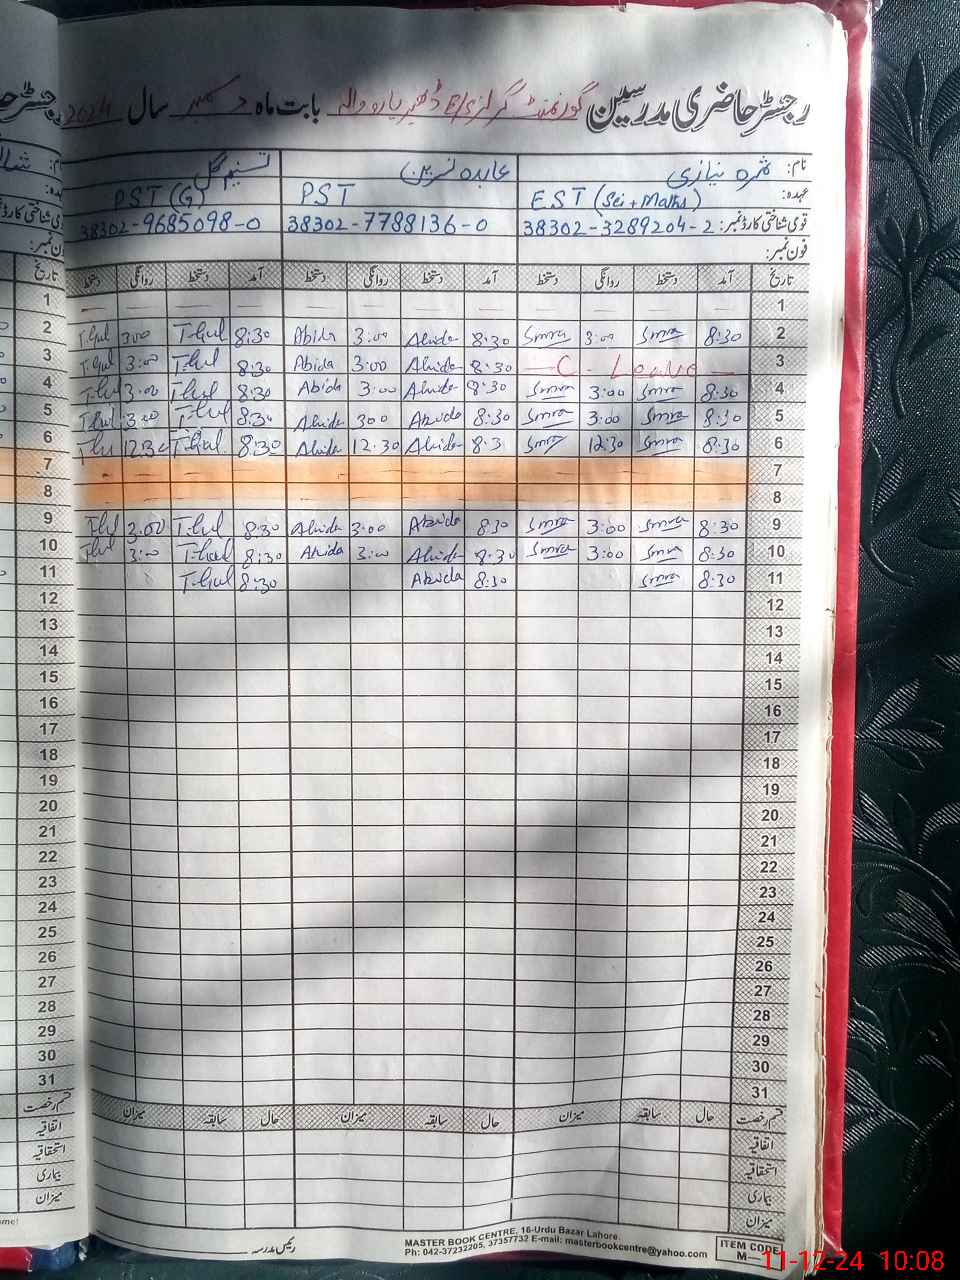 رجسٹر حاضری مدرسین گورنمنٹ گرلز E/S ڈھیر یارو والہ بابت ماہ دسمبر سال 2024
نام: ثمرہ نیازی عابدہ نسرین تسنیم گل
عہدہ: EST (Sci + Maths) PST PST (G)
قومی شناختی کارڈ نمبر: 38302-3289204-2 38302-7788136-0 38302-9685098-0
فون نمبر:
تاریخ آمد دستخط روانگی دستخط آمد دستخط روانگی دستخط آمد دستخط روانگی دستخط
1
2 8:30 Smra 3:00 Smra 8:30 Abida 3:00 Abida 8:30 T.Gul 3:00 T.Gul
3 C. Leave 8:30 Abida 3:00 Abida 8:30 T.Gul 3:00 T.Gul
4 8:30 Smra 3:00 Smra 8:30 Abida 3:00 Abida 8:30 T.Gul 3:00 T.Gul
5 8:30 Smra 3:00 Smra 8:30 Abida 300 Abida 8:30 T.Gul 3:00 T.Gul
6 8:30 Smra 12:30 Smra 8:3 Abida 12:30 Abida 8:30 T.Gul 12:30 T.Gul
7
8
9 8:30 Smra 3:00 Smra 8:30 Abida 3:00 Abida 8:30 T.Gul 3:00 T.Gul
10 8:30 Smra 3:00 Smra 8:30 Abida 3:00 Abida 8:30 T.Gul 3:00 T.Gul
11 8:30 Smra 8:30 Abida 8:30 T.Gul
12
13
14
15
16
17
18
19
20
21
22
23
24
25
26
27
28
29
30
31
قسم رخصت حال سابقہ میزان حال سابقہ میزان حال سابقہ میزان
اتفاقیہ
استحقاقیہ
بیماری
میزان
رئیس مدرسہ
MASTER BOOK CENTRE, 16-Urdu Bazar Lahore.
Ph: 042-37232205, 37357732 E-mail: masterbookcentre@yahoo.com
ITEM CODE
11-12-24 10:08